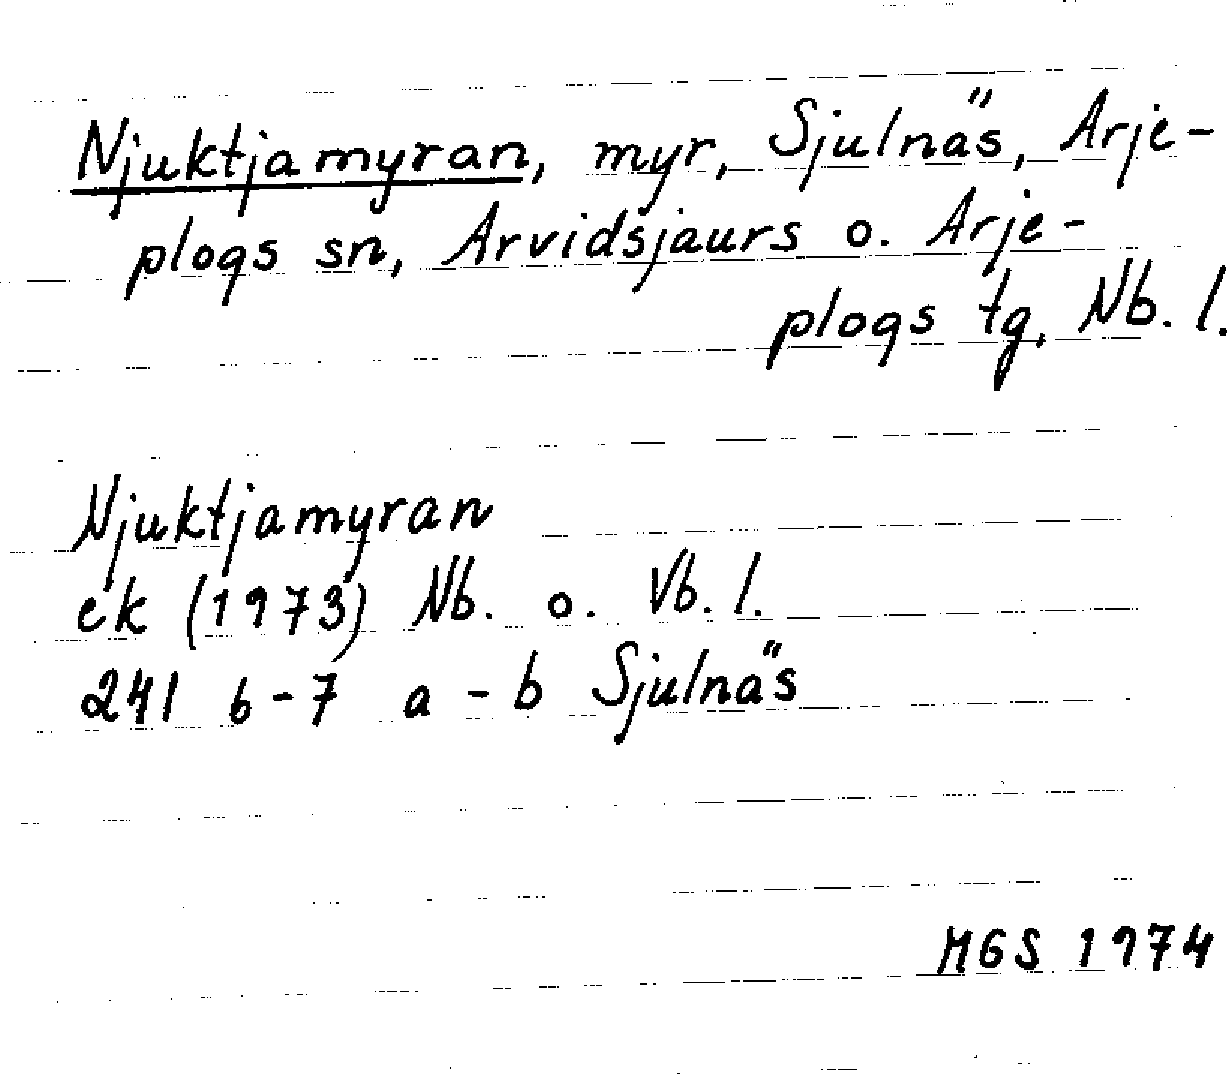 Njuktjamyran, myr, Sjulnäs, Arje-
plogs sn, Arvidsjaurs o. Arje-
plogs tg, Nb. l.
Njuktjamyran
ek (1973) Nb. o. Vb. l.
241 6-7 a-b Sjulnäs
MGS 1974